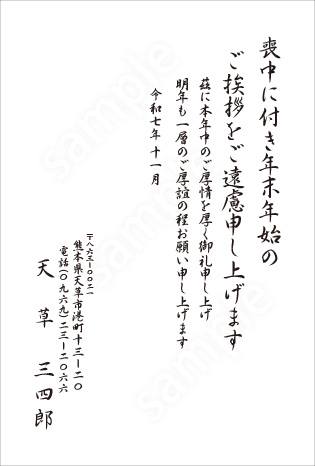 喪中に付き年末年始の
ご挨拶をご遠慮申し上げます
茲に本年中のご厚情を厚く御礼申し上げ
明年も一層のご厚誼の程お願い申し上げます
令和七年 十一月
〒八六三-〇〇二一
熊本県天草市港町十三-二〇
電話(〇九六九)二三-二〇六六
天草 三四郎
sample
sample
sample